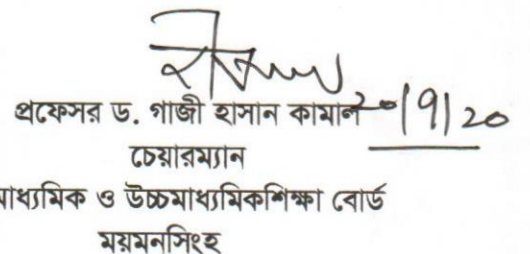 প্রফেসর ড. গাজী হাসান কামাল
২০/৭/২০
চেয়ারম্যান
মাধ্যমিক ও উচ্চমাধ্যমিকশিক্ষা বোর্ড
ময়মনসিংহ